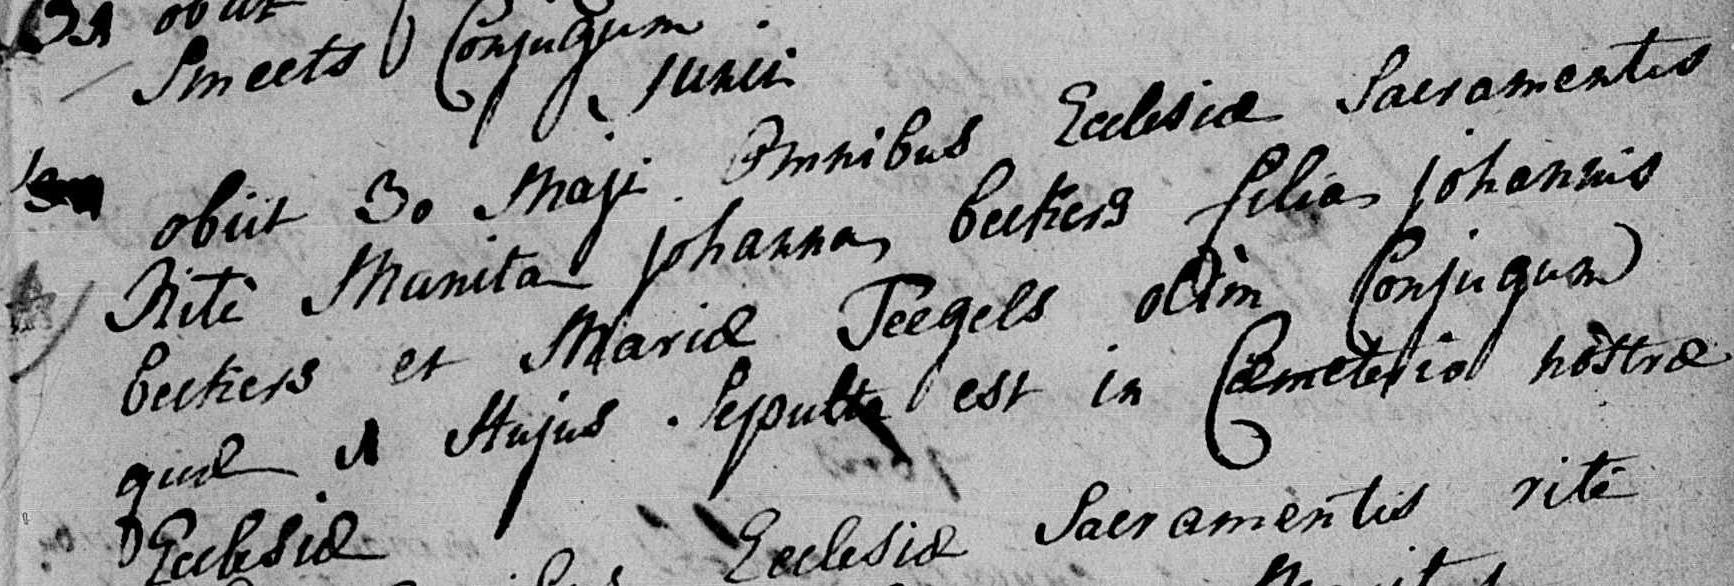 31 obiit
Smeets Conjugum
Junii
obiit 30 Maji Omnibus Ecclesiæ Sacramentis
Ritè Munita Johanna beckers filia Johannis
beckers et Mariæ Teegels olim Conjugum
quæ 1 Hujus Sepulta est in Cæmeterio nostræ
Ecclesiæ
Ecclesiæ Sacramentis ritè